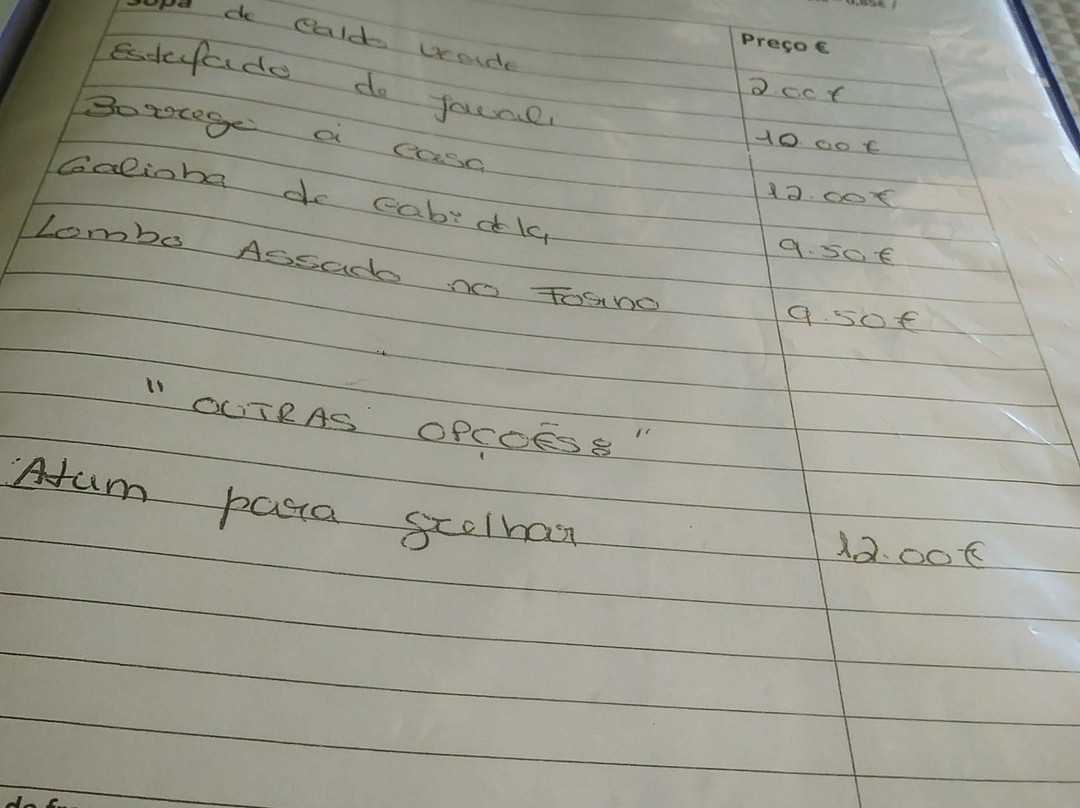 Sopa de Caldo verde
Preço €
2.00€
Estufado de javali
10.00€
Borrego à casa
12.00€
Galinha de Cabidela
9.50€
Lombo Assado no Forno
9.50€
"OUTRAS OPÇÕES"
Atum para grelhar
12.00€